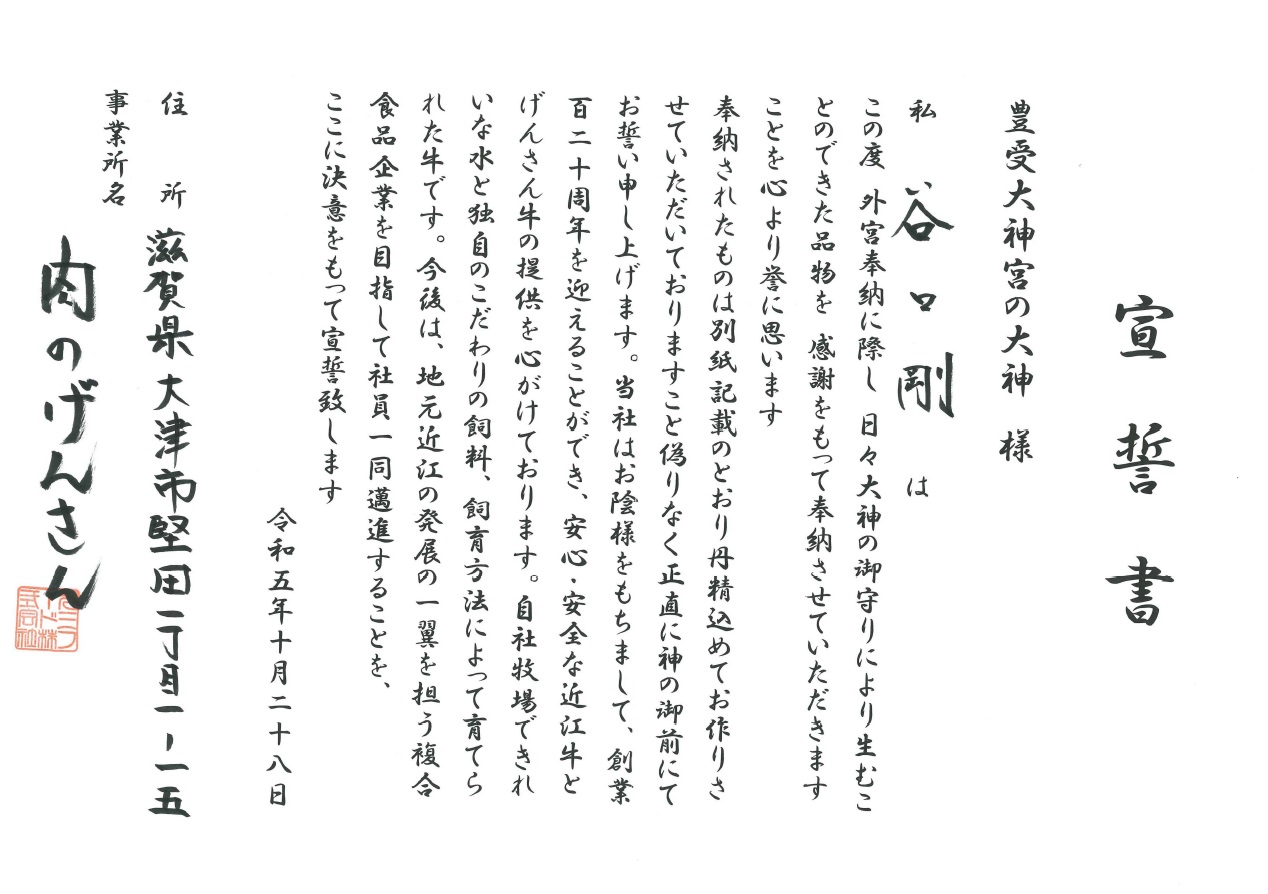 宣誓書
豊受大神宮の大神 様
私 谷口剛 は
この度 外宮奉納に際し 日々大神の御守りにより生むこ
とのできた品物を 感謝をもって奉納させていただきます
ことを心より誉に思います
奉納されたものは別紙記載のとおり丹精込めてお作りさ
せていただいておりますこと偽りなく正直に神の御前にて
お誓い申し上げます。当社はお陰様をもちまして、創業
百二十周年を迎えることができ、安心・安全な近江牛と
げんさん牛の提供を心がけております。自社牧場できれ
いな水と独自のこだわりの飼料、飼育方法によって育てら
れた牛です。今後は、地元近江の発展の一翼を担う複合
食品企業を目指して社員一同邁進することを、
ここに決意をもって宣誓致します
令和五年十月二十八日
住所 滋賀県大津市堅田二丁目一-一五
事業所名 肉のげんさん